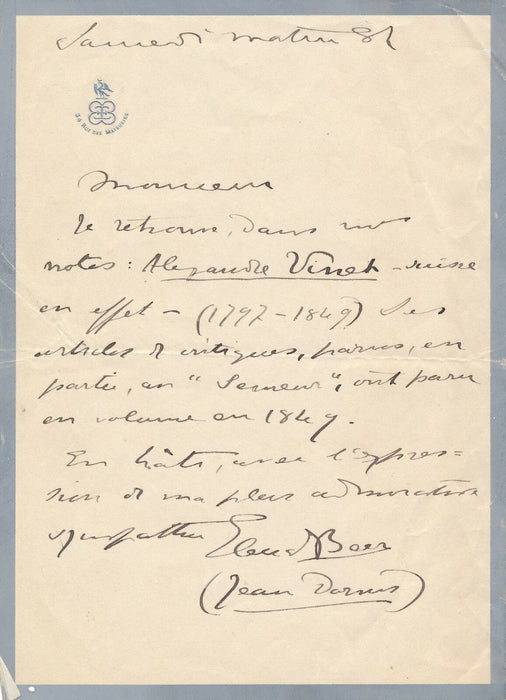 Samedi matin
34 RUE DES MATHURINS
Monsieur
Je retrouve, dans mes
notes : Alexandre Vinet - suisse
en effet - (1797-1849) Ses
articles de critiques, parus, en
partie, au "Semeur", ont paru
en volume en 1849.
En hâte, avec l'expres=
sion de ma plus admirative
sympathie
Beer
(Jean Dornis)